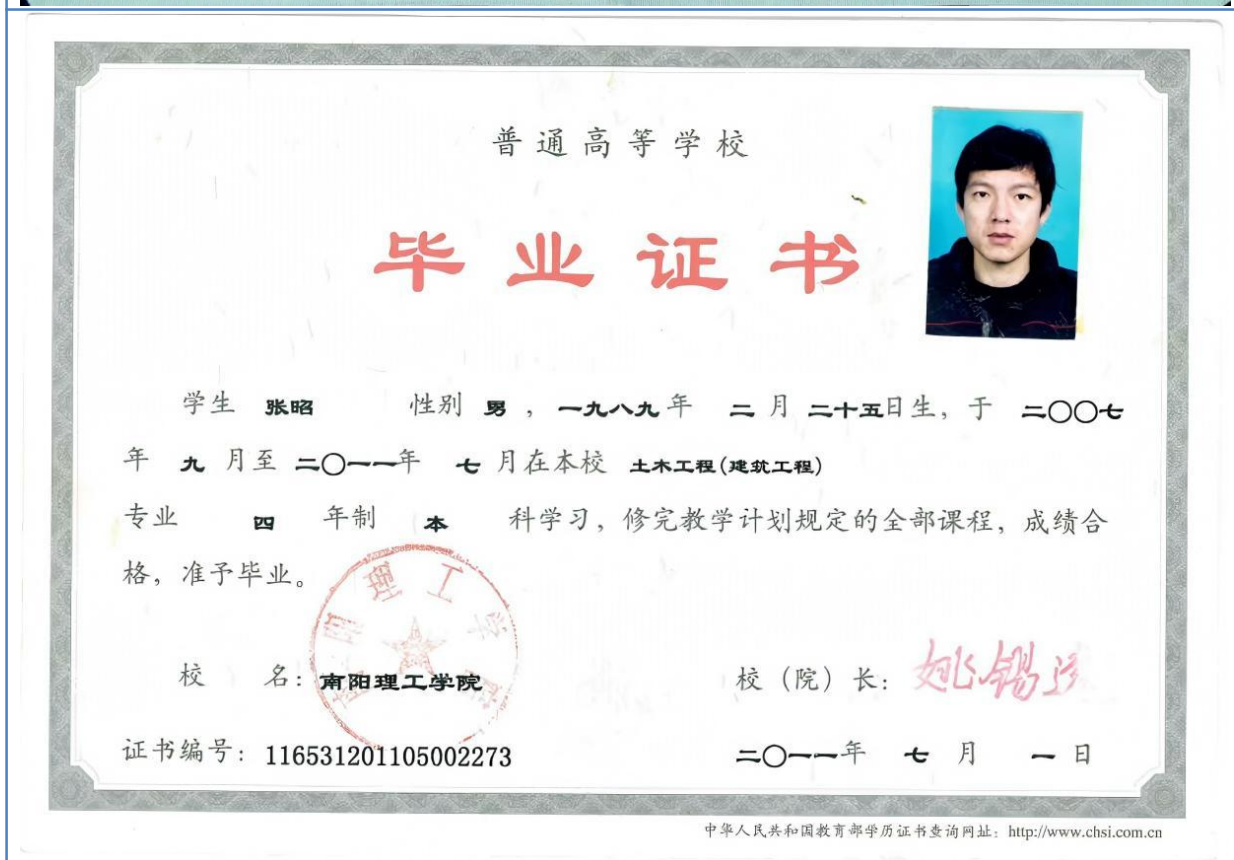 普通高等学校
毕业证书
学生 张昭 性别 男，一九八九年 二月二十五日生，于 二〇〇七
年 九 月至 二〇一一年 七 月在本校 土木工程(建筑工程)
专业 四 年制 本 科学习，修完教学计划规定的全部课程，成绩合
格，准予毕业。
校 名：南阳理工学院
校（院）长：
证书编号：116531201105002273
二〇一一年 七 月 一 日
中华人民共和国教育部学历证书查询网址：http://www.chsi.com.cn